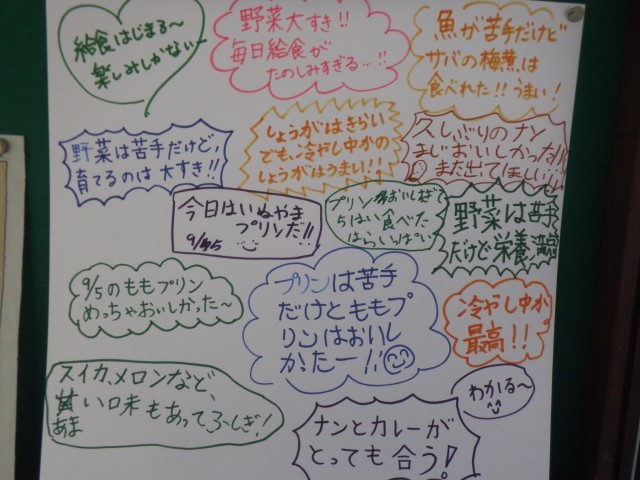 給食はじまる〜
楽しみしかない〜
野菜大すき!!
毎日給食が
たのしみすぎる…!!
魚が苦手だけど
サバの梅煮は
食べれた!!うまい!
野菜は苦手だけど、
育てるのは大すき!!
しょうがはきらい
でも、冷やし中かの
しょうがはうまい!!
久しぶりのナン
まじおいしかった!!
また出てほしい!!
今日はいぬやま
プリンだ!!
9/5
プリンおいしすぎ
5はい食べた
はらいっぱい
野菜は苦手
だけど栄養満点
9/5のももプリン
めっちゃおいしかった〜
プリンは苦手
だけどももプ
リンはおいし
かったー!!
冷やし中か
最高!!
スイカ、メロンなど、
甘い口味もあってふしぎ!
あま
わかる〜
ナンとカレーが
とっても合う!